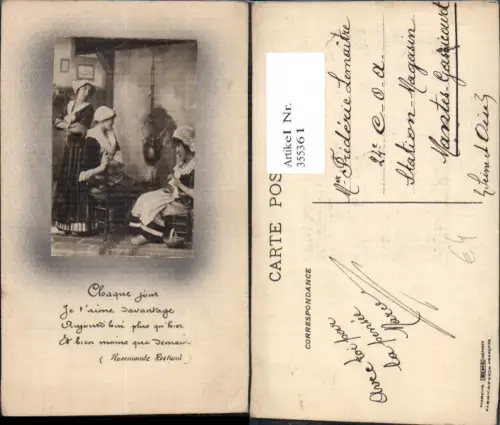 Chaque jour
Je t'aime davantage
Aujourd'hui plus qu'hier
Et bien moins que demain
(Rosemonde Rostand)
Artikel Nr.
355361
CARTE POS
CORRESPONDANCE
Mr Fréderic Lemaître
24e C.O.A
Station-Magasin
Mantes-Gassicourt
Seine et Oise
64
avec
la
FABRICATION FRANÇAISE